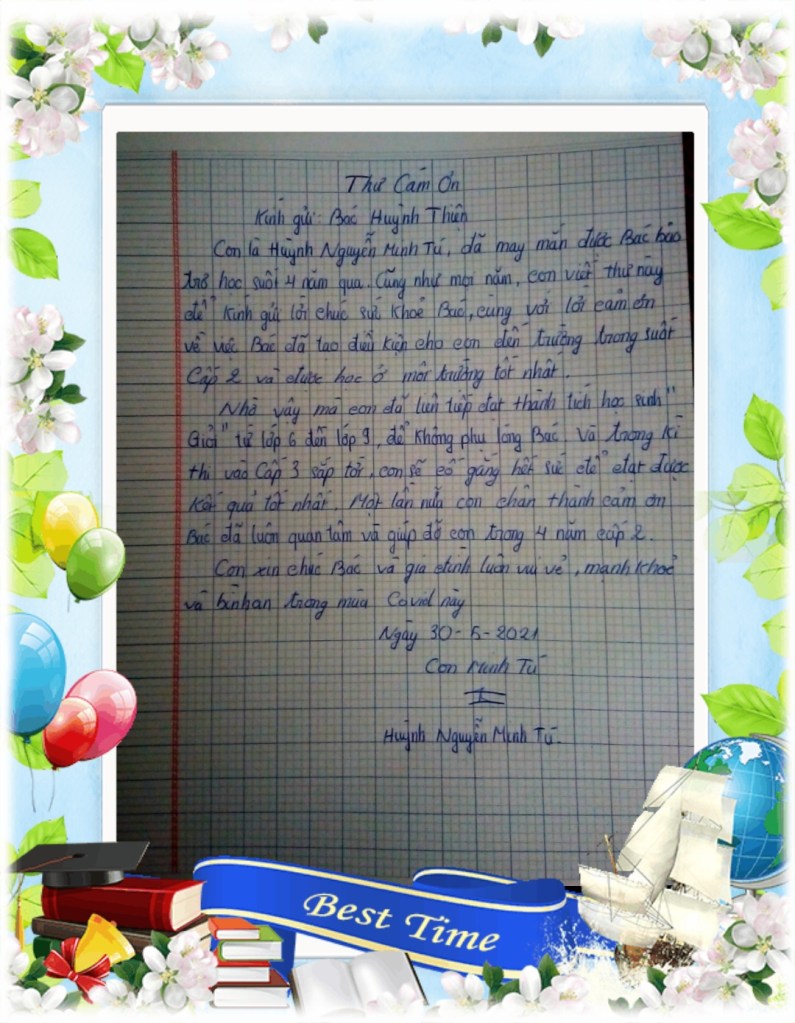 Thư Cảm Ơn
Kính gửi: Bác Huỳnh Thiện
Con là Huỳnh Nguyễn Minh Tú, đã may mắn được Bác bảo
trở học suốt 4 năm qua. Cũng như mọi năm, con viết thư này
để kính gửi lời chúc sức khoẻ Bác, cùng với lời cảm ơn
về việc Bác đã tạo điều kiện cho con đến trường trong suốt
Cấp 2 và được học ở môi trường tốt nhất.
Nhờ vậy mà con đã liên tiếp đạt thành tích học sinh "
Giỏi" từ lớp 6 đến lớp 9, để không phụ lòng Bác. Và trong kì
thi vào Cấp 3 sắp tới, con sẽ cố gắng hết sức để đạt được
kết quả tốt nhất. Một lần nữa con chân thành cảm ơn
Bác đã luôn quan tâm và giúp đỡ con trong 4 năm cấp 2.
Con xin chúc Bác và gia đình luôn vui vẻ, mạnh khoẻ
và bình an trong mùa Covid này
Ngày 30-5-2021
Con Minh Tú
Huỳnh Nguyễn Minh Tú.
Best Time